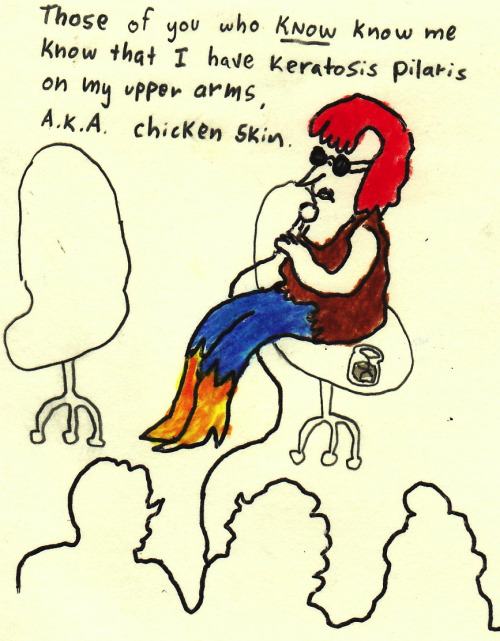 Those of you who KNOW know me
know that I have Keratosis Pilaris
on my upper arms,
A.K.A. chicken skin.